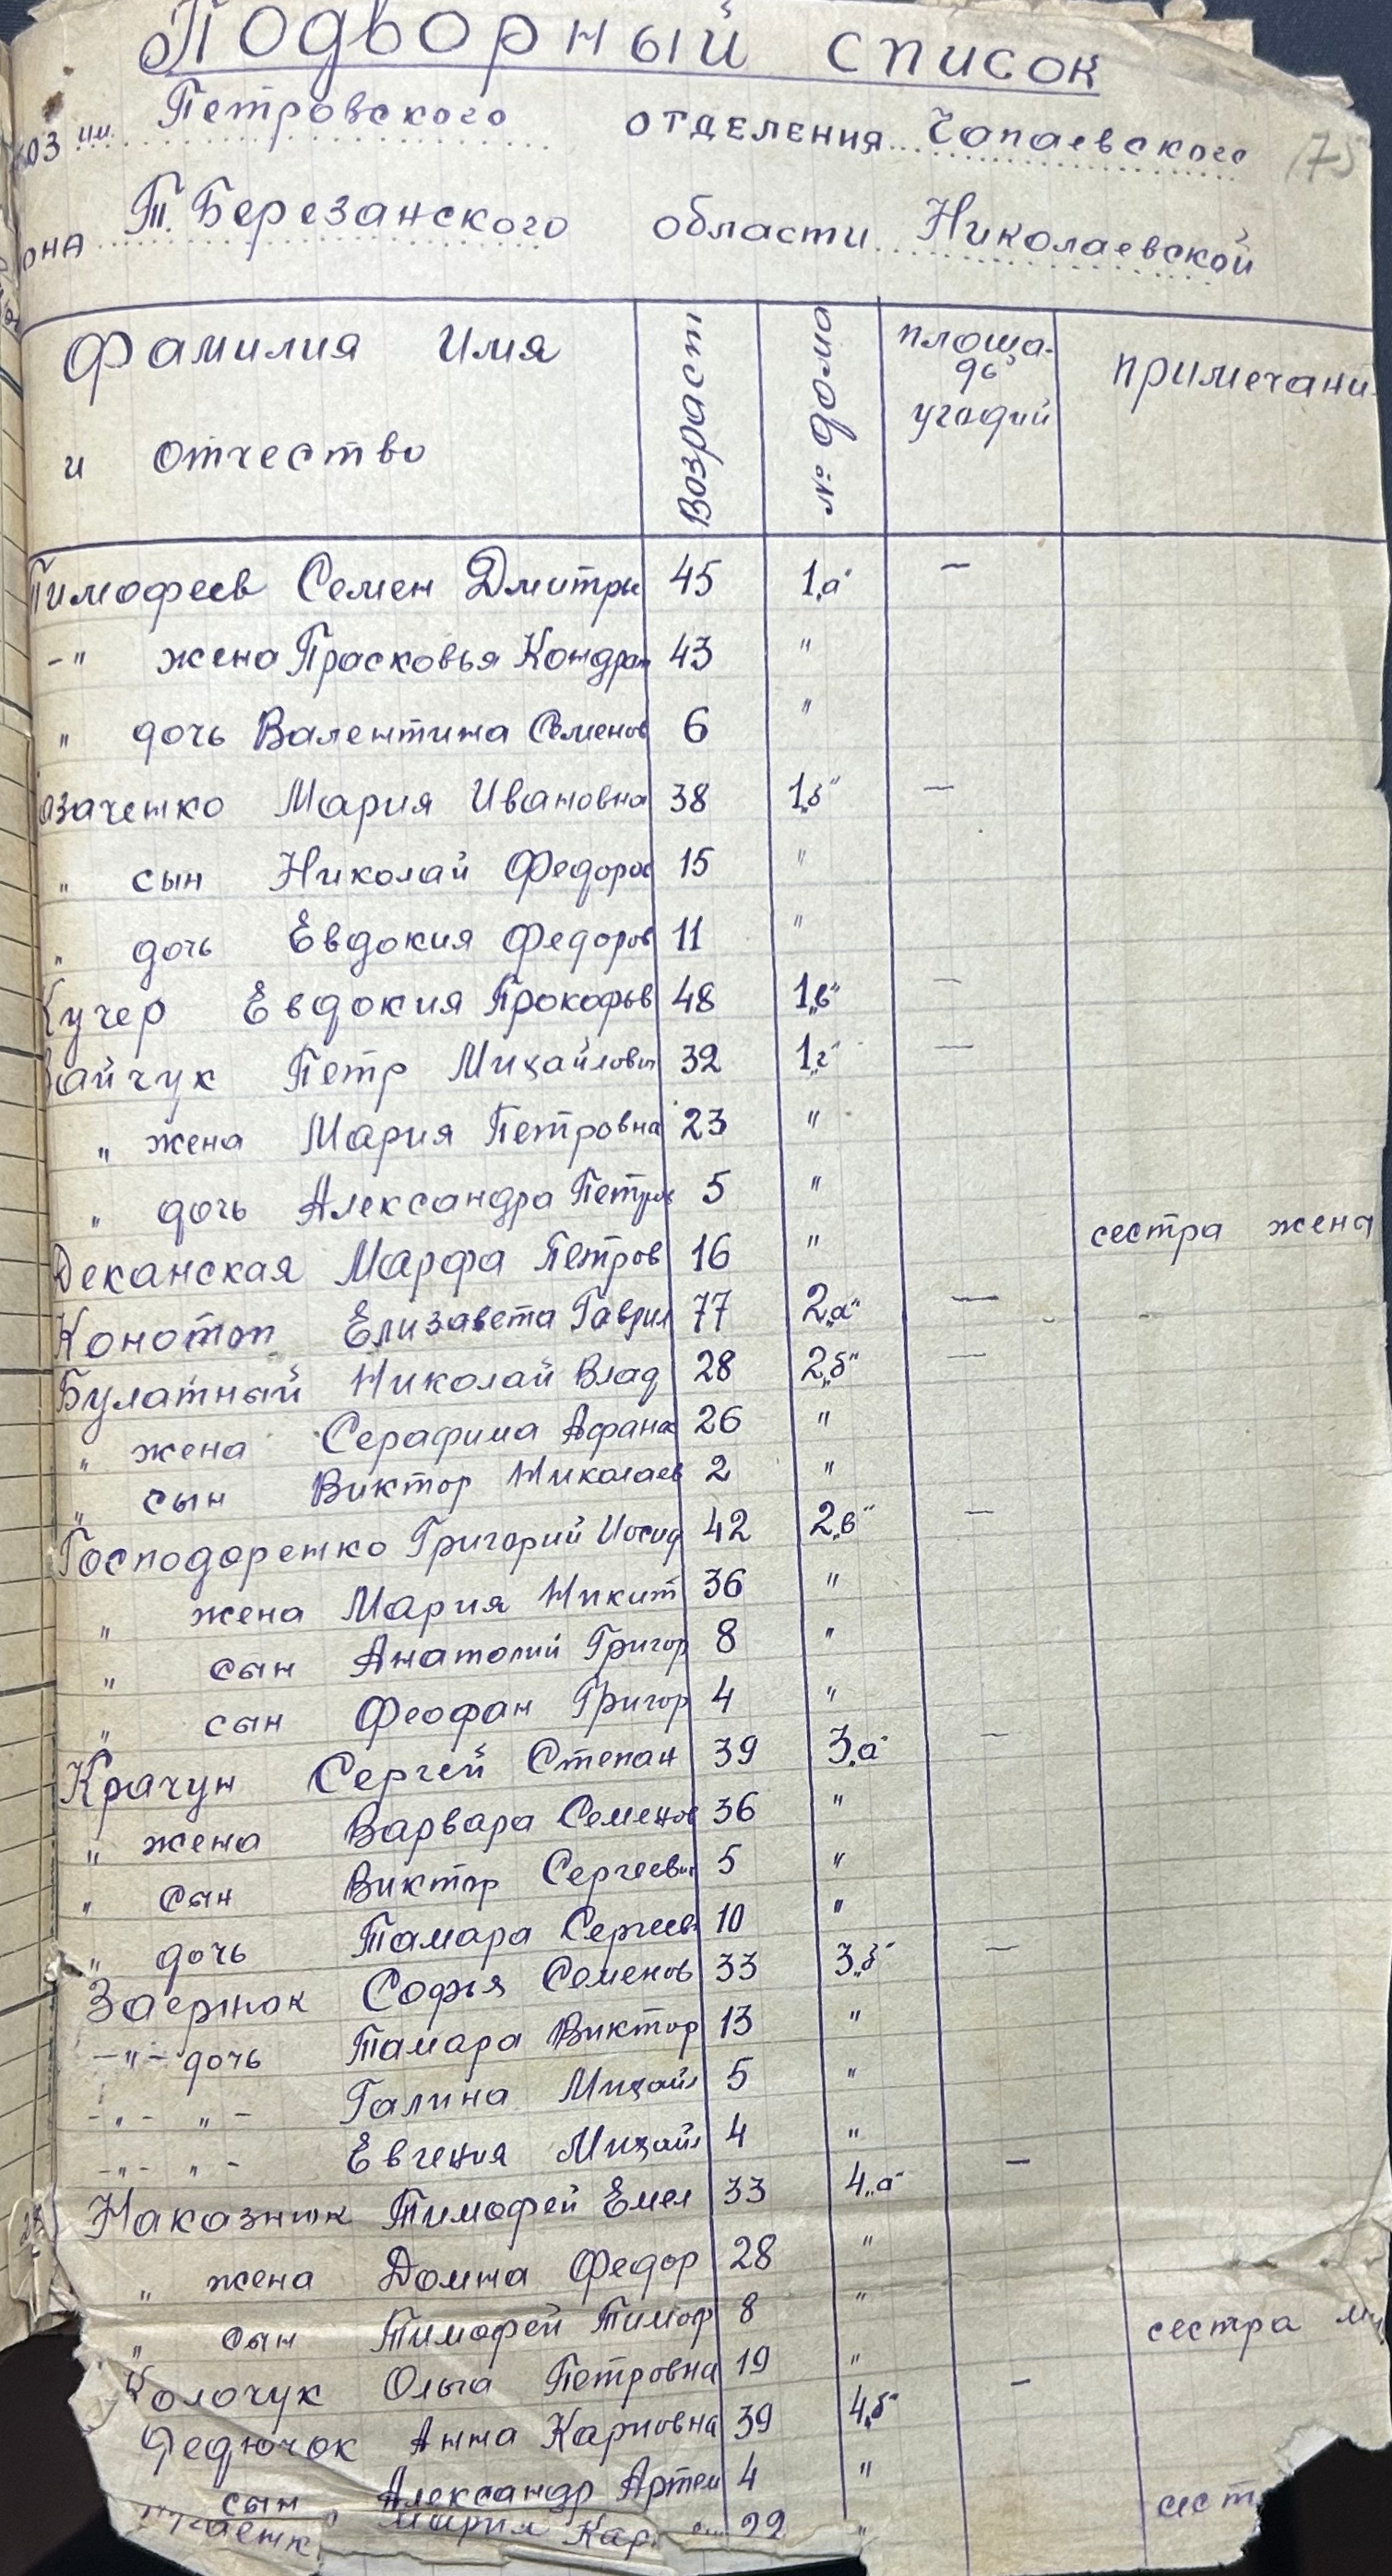 Подворный список
им. Петровского отделения Чапаевского 175
Т. Березанского области Николаевской
Фамилия Имя и отчество Возраст № дома площадь угодий примечани
Тимофеев Семен Дмитры 45 1„а“ —
-" жена Прасковья Кондрат 43 "
" дочь Валентина Семенов 6 "
азаченко Мария Ивановна 38 1„б“ —
" сын Николай Федоров 15 "
" дочь Евдокия Федоров 11 "
Кучер Евдокия Прокофьв 48 1„в“ —
Зайчук Петр Михайлови 32 1„г“ —
" жена Мария Петровна 23 "
" дочь Александра Петров 5 "
Деканская Марфа Петров 16 " сестра жена
Конотоп Елизавета Гаврил 77 2„а“ —
Булатный Николай Влад 28 2„б“ —
" жена Серафима Афанас 26 "
" сын Виктор Николаев 2 "
Господаренко Григорий Иосиф 42 2„в“ —
" жена Мария Никит 36 "
" сын Анатолий Григор 8 "
" сын Феофан Григор 4 "
Крачун Сергей Степан 39 3„а“ —
" жена Варвара Семенов 36 "
" сын Виктор Сергеевич 5 "
" дочь Тамара Сергеев 10 "
Заернюк Софья Семенов 33 3„б“ —
-"- дочь Тамара Виктор 13 "
-"- "- Галина Михайл 5 "
-"- "- Евгения Михайл 4 "
Наказнюк Тимофей Емел 33 4„а“ —
" жена Домна Федор 28 "
" сын Тимофей Тимоф 8 "
Колочук Ольга Петровна 19 " сестра му
Федючок Анна Карповна 39 4„б“ —
сын Александр Артем 4 "
Мария Кар 22 " сест